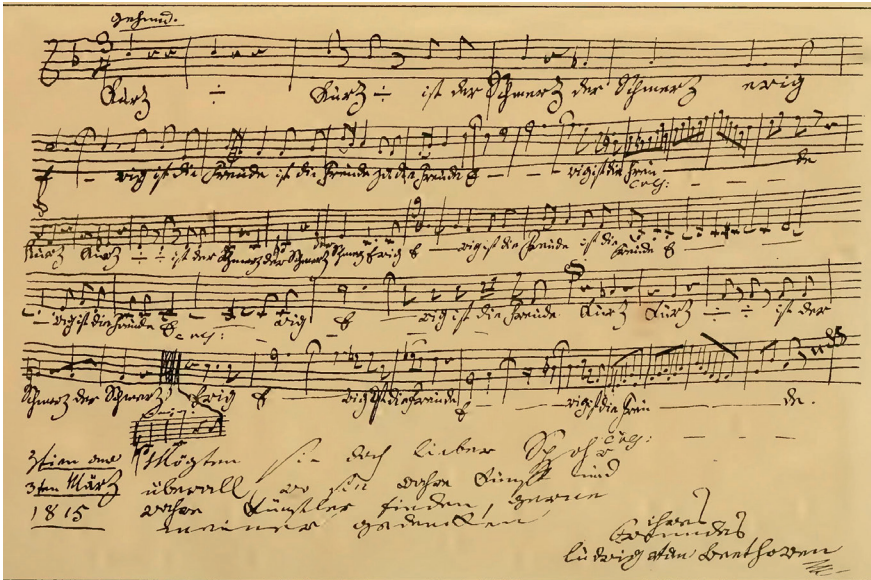 Kurz ÷ Kurz ÷ ist der Schmerz der Schmerz ewig
E - - wig ist die Freude ist die Freude ja die Freude E - - - wig ist die Freu - - - de
cresc: - -
Kurz Kurz ÷ ÷ ist der Schmerz der Schmerz der Schmerz Ewig E - - wig ist die Freude ist die Freude E - - -
- wig ist die Freude E - - - wig - E - - - wig ist die Freude Kurz Kurz ÷ ÷ ist der
cresc: - - -
Schmerz der Schmerz Ewig E - - wig ist die Freude E - - - wig ist die Freu - - - de.
cresc: - - -
Wien am Mögten sie doch lieber Spohr
3ten März überall, wo sie wahre Kunst und
1815 wahre Künstler finden, gerne
meiner gedenken
ihres
Freundes
Ludwig van Beethoven